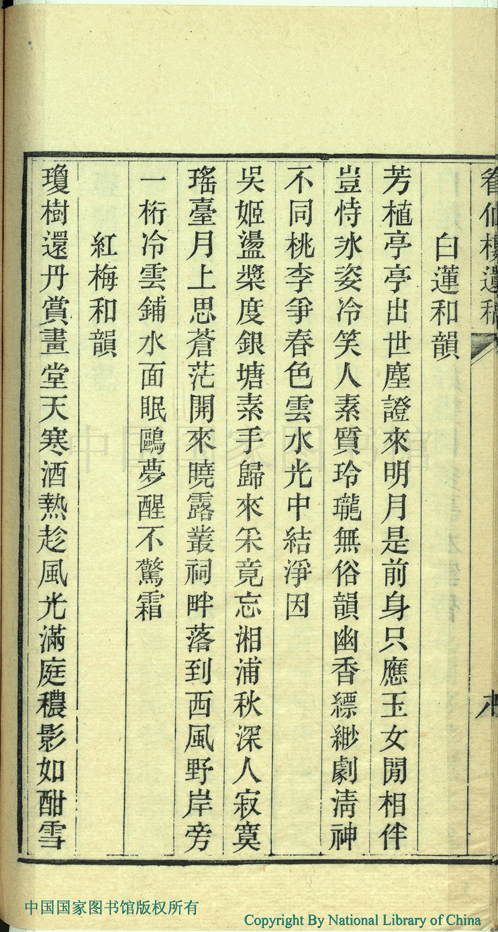 仙樓遺稿
白蓮和韻
芳植亭亭出世塵證來明月是前身只應玉女閒相伴
豈恃氷姿冷笑人素質玲瓏無俗韻幽香縹緲劇淸神
不同桃李爭春色雲水光中結淨因
吳姬盪槳度銀塘素手歸來采竟忘湘浦秋深人寂寞
瑤臺月上思蒼茫開來曉露叢祠畔落到西風野岸旁
一桁冷雲鋪水面眠鷗夢醒不驚霜
紅梅和韻
瓊樹還丹賞畫堂天寒酒熱趁風光滿庭穠影如酣雪
中国国家图书馆版权所有
Copyright By National Library of China